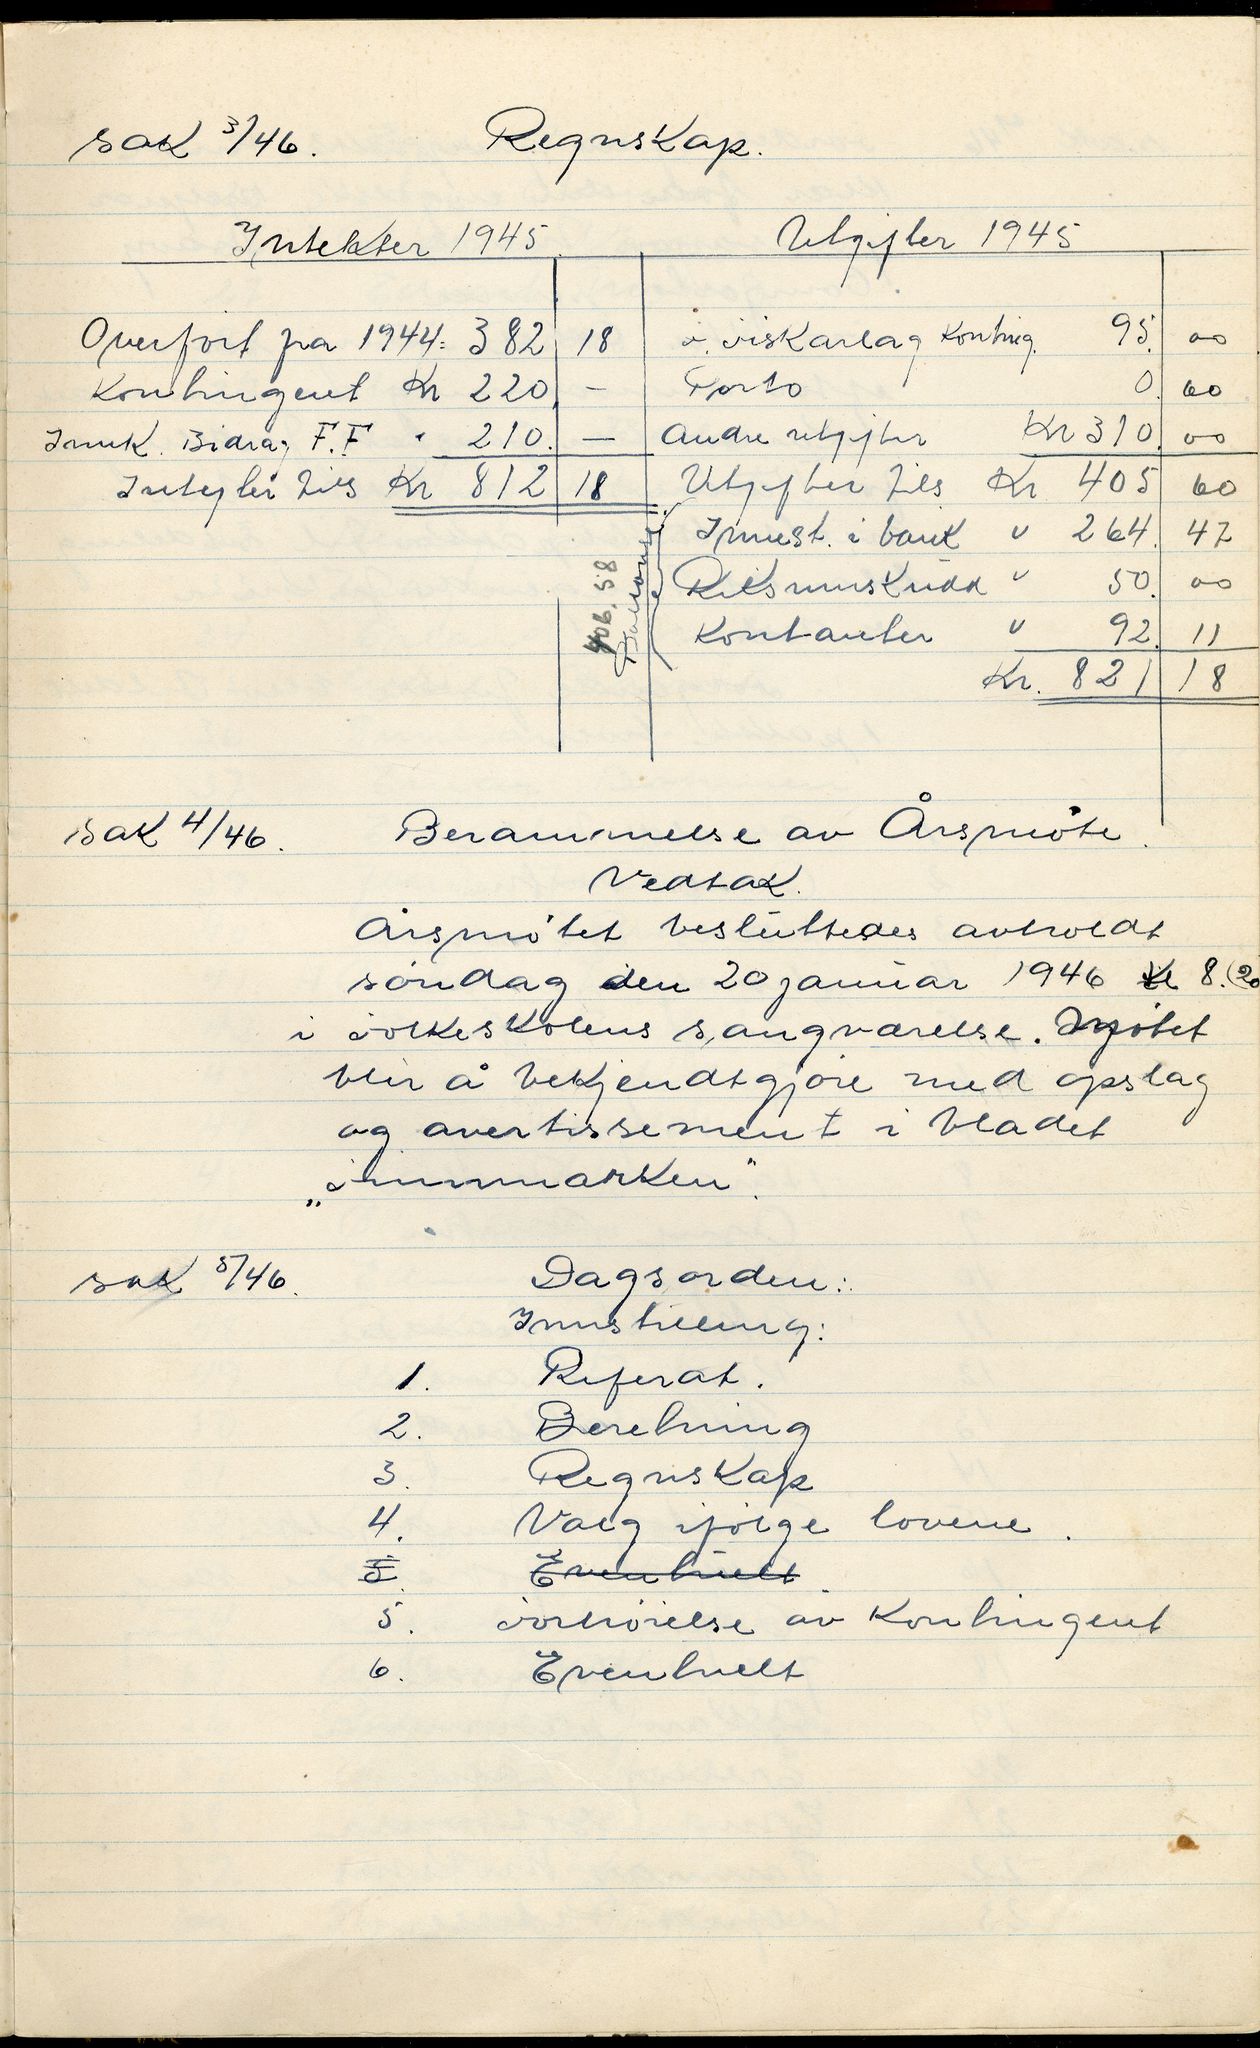 sak 3/46. Regnskap.
Intekter 1945 Utgifter 1945
Overført fra 1944: 382 18 F. Fiskarlag Konting. 95. 00
Kontingent Kr 220. — Porto 0. 60
Innk. Bidrag F.F " 210. — Andre utgifter Kr 310. 00
Integter tils Kr 812 18 Utgifter tils Kr 405 60
Innest. i bank " 264. 47
Riks " 50. 00
Kontanter " 92. 11
Kr. 821 18
406,58
sak 4/46. Berammelse av Årsmöte.
Vedtak.
Årsmötet besluttedes avholdt
söndag den 20 januar 1946 Kl 8. (20
i Folkeskolens sangværelse. Møtet
blir å bekjendtgjöre med opslag
og avertissement i bladet
„Finnmarken".
sak 5/46. Dagsorden:
Innstilling:
1. Referat.
2. Beretning
3. Regnskap
4. Valg ifölge lovene.
5. Eventuelt
5. Forhöielse av Kontingent
6. Eventuelt